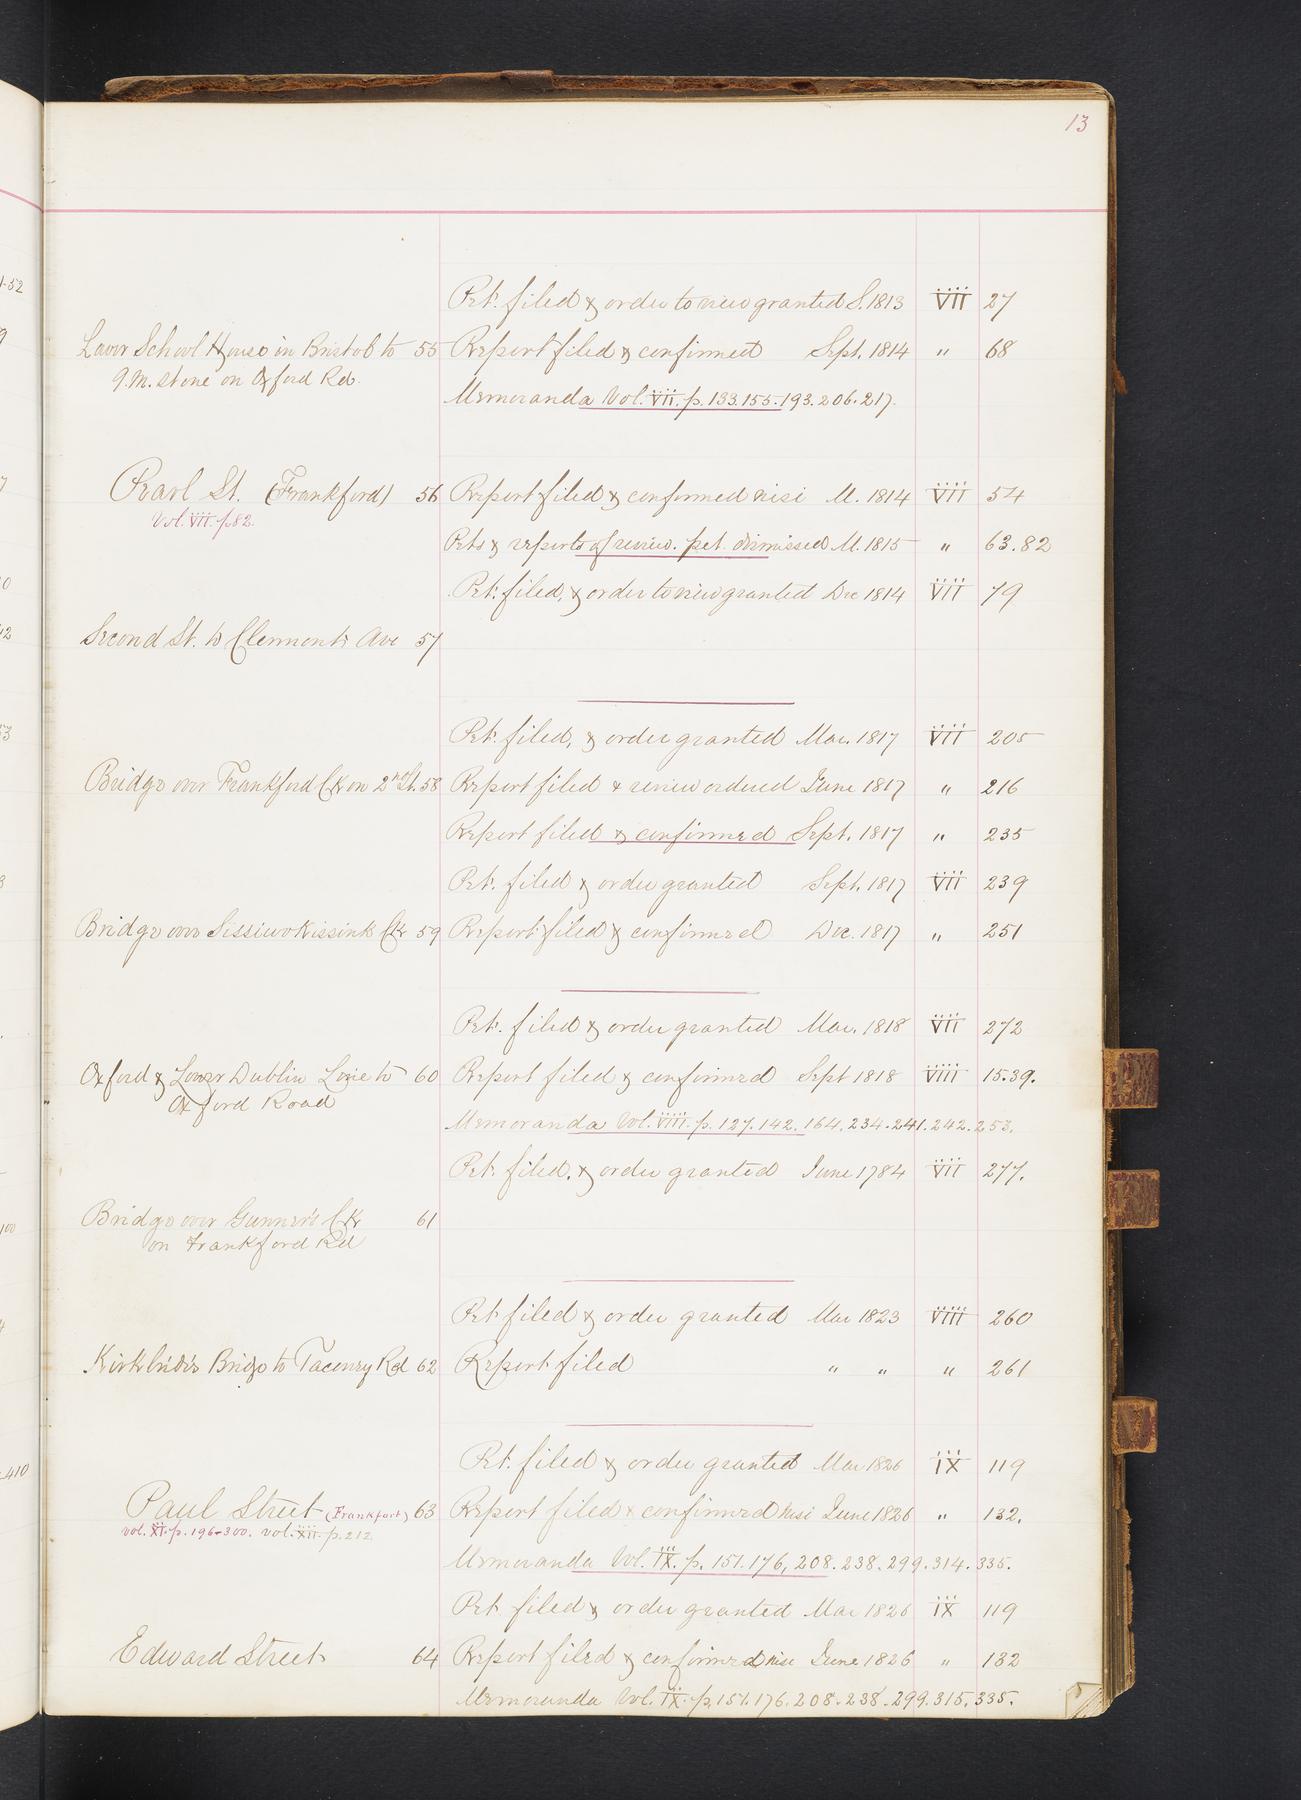 13
Pet. filed & order to view granted S. 1813 VII 27
Lower School House in Bristol to 55 Report filed & confirmed Sept. 1814 " 68
9. M. stone on Oxford Rd.
Memoranda Vol. VII. p. 133.155.193.206.217.
Pearl St. (Frankford) 56 Report filed & confirmed nisi M. 1814 VII 54
Vol. VII. p82.
Pets & reports of review. pet. dismissed M. 1815 " 63.82
Pet. filed, & order to view granted Dec 1814 VII 79
Second St. to Clermont Ave 57
Pet. filed, & order granted Mar. 1817 VII 205
Bridge over Frankford Ck on 2nd St. 58 Report filed & review ordered June 1817 " 216
Report filed & confirmed Sept. 1817 " 235
Pet. filed & order granted Sept. 1817 VII 239
Bridge over Sissiwokissink Ck 59 Report filed & confirmed Dec. 1817 " 251
Pet. filed & order granted Mar. 1818 VII 272
Oxford & Lower Dublin Line to 60 Report filed & confirmed Sept 1818 VIII 15.39.
Oxford Road
Memoranda Vol. VIII. p. 127.142.164.234.241.242.253.
Pet. filed, & order granted June 1784 VII 277.
Bridge over Gunner's Ck 61
on Frankford Rd
Pet filed & order granted Mar 1823 VIII 260
Kirkbride's Bridge to Tacony Rd 62 Report filed " " " 261
Pet. filed & order granted Mar 1826 IX 119
Paul Street (Frankfort) 63 Report filed & confirmed nisi June 1826 " 132.
vol. XI. p. 196-300. vol. XII. p. 212
Memoranda Vol. IX. p. 151.176, 208.238.299.314.335.
Pet filed & order granted Mar 1826 IX 119
Edward Street 64 Report filed & confirmed nisi June 1826 " 132
Memoranda Vol. IX. p. 151.176.208.238.299.315.335.